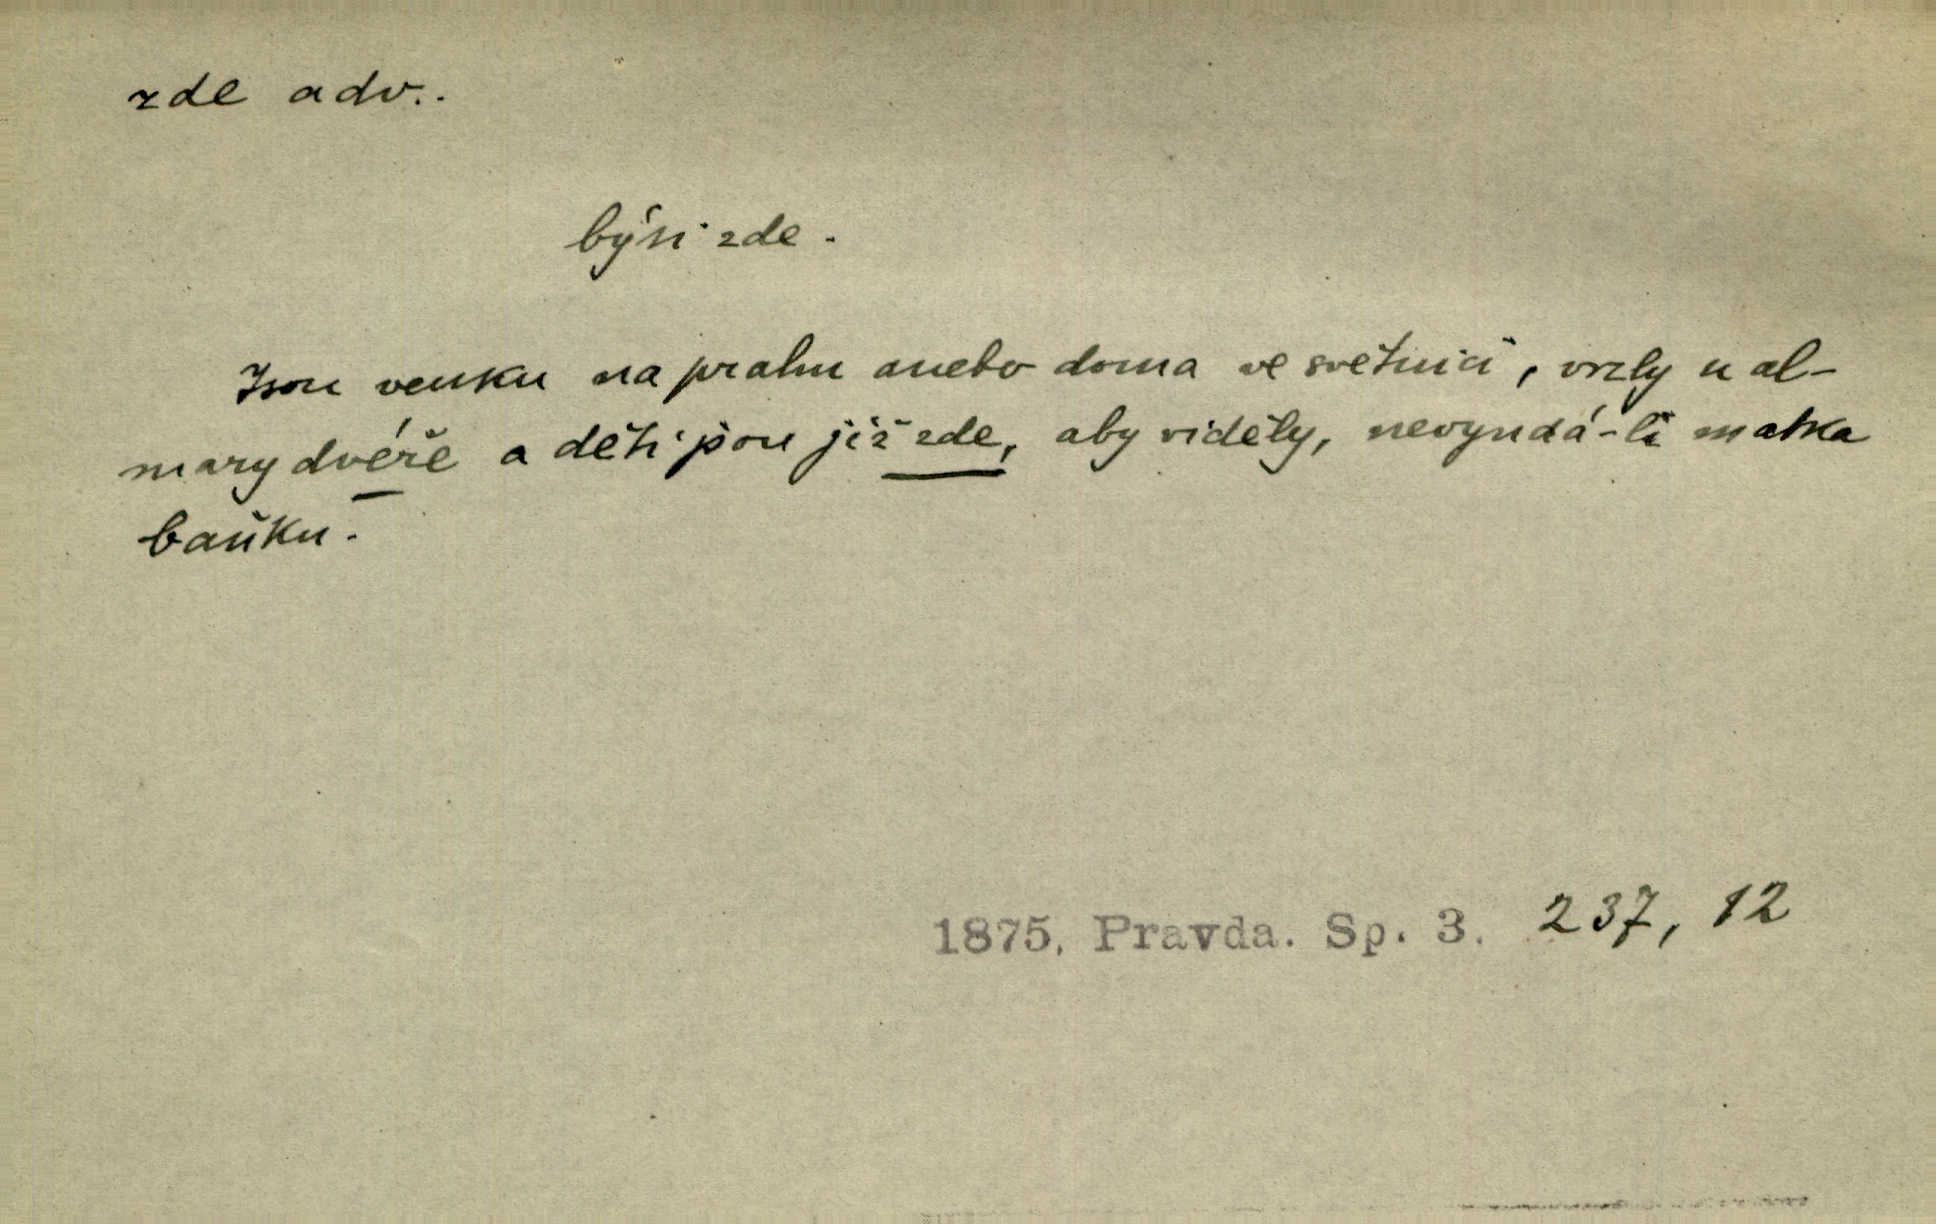 zde adv..
býti zde.
Jsou venku na prahu anebo doma ve světnici, vrzly u al-
mary dvéře a děti jsou již zde, aby viděly, nevyndá-li matka
baňku.
1875, Pravda. Sp. 3. 237, 12